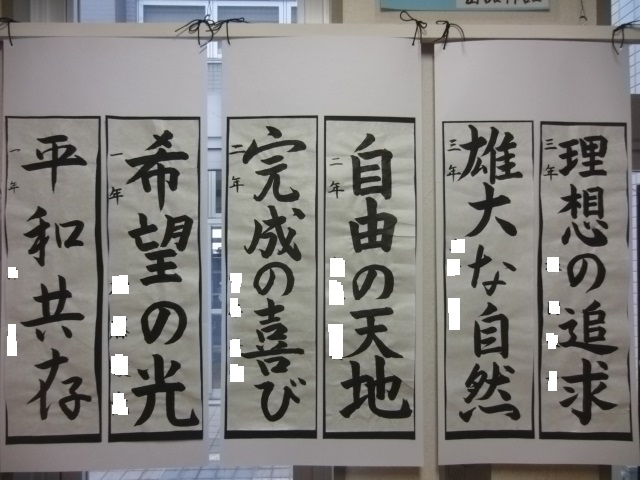 理想の追求
三年
雄大な自然
三年
自由の天地
二年
完成の喜び
二年
希望の光
一年
平和共存
一年